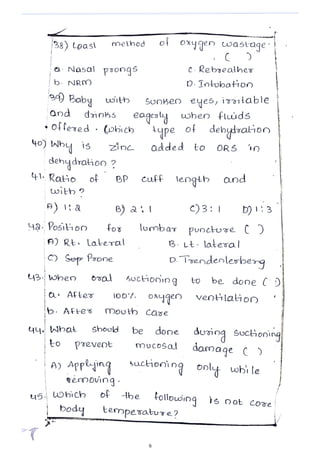 38) Least method of oxygen wastage.
( )
a. Nasal prongs C. Rebreather
b. NRM D. Intubation
39) Baby with sunken eyes, irritable
and drinks eagerly when fluids
offered. Which type of dehydration
40) Why is zinc added to ORS in
dehydration ?
41. Ratio of BP cuff length and
width ?
A) 1:2 B) 2:1 C) 3:1 D) 1:3
42. Position for lumbar puncture ( )
A) Rt. Lateral B. Lt. lateral
C) Prone D. Trendenlenberg
43. When oral suctioning to be done ( )
a. After 100% oxygen ventilation
b. After mouth care
44. What should be done during suctioning
to prevent mucosal damage ( )
A) Applying suctioning only while
removing.
45. Which of the following is not core
body temperature?